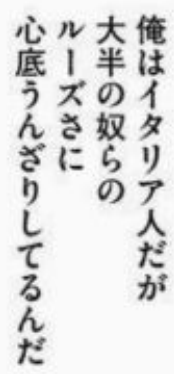 俺はイタリア人だが
大半の奴らの
ルーズさに
心底うんざりしてるんだ